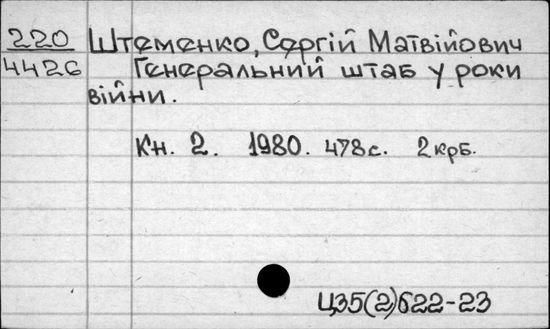 220
4426
Штеменко, Сергій Матвійович
Генеральний штаб у роки
війни.
Кн. 2. 1980. 478с. 2крб.
Ц35(2)622-23